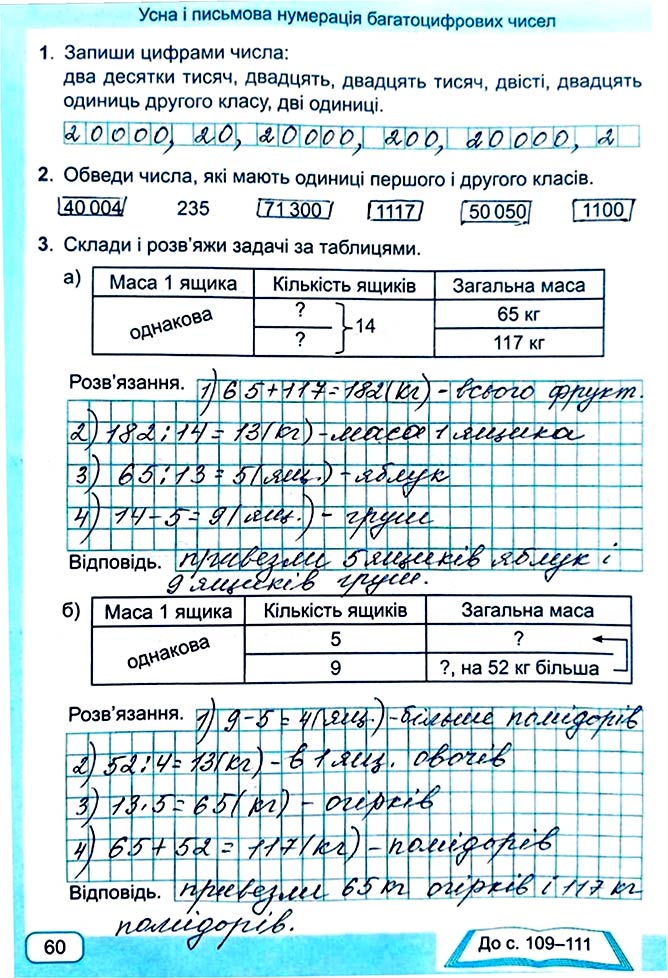 Усна і письмова нумерація багатоцифрових чисел
1. Запиши цифрами числа:
два десятки тисяч, двадцять, двадцять тисяч, двісті, двадцять
одиниць другого класу, дві одиниці.
20000, 20, 20000, 200, 20000, 2
2. Обведи числа, які мають одиниці першого і другого класів.
40 004 235 71 300 1117 50 050 1100
3. Склади і розв'яжи задачі за таблицями.
а) Маса 1 ящика Кількість ящиків Загальна маса
однакова ? 14 65 кг
? 117 кг
Розв'язання. 1) 65+117=182(кг) - всього фрукт.
2) 182:14=13(кг)-маса 1 ящика
3) 65:13=5(ящ.)-яблук
4) 14-5=9(ящ.)- груш
Відповідь. привезли 5 ящиків яблук і
9 ящиків груш.
б) Маса 1 ящика Кількість ящиків Загальна маса
однакова 5 ?
9 ?, на 52 кг більша
Розв'язання. 1) 9-5=4(ящ.)-більше помідорів
2) 52:4=13(кг)-в 1 ящ. овочів
3) 13·5=65(кг)- огірків
4) 65+52=117(кг)-помідорів
Відповідь. привезли 65 кг огірків і 117 кг
помідорів.
60 До с. 109–111